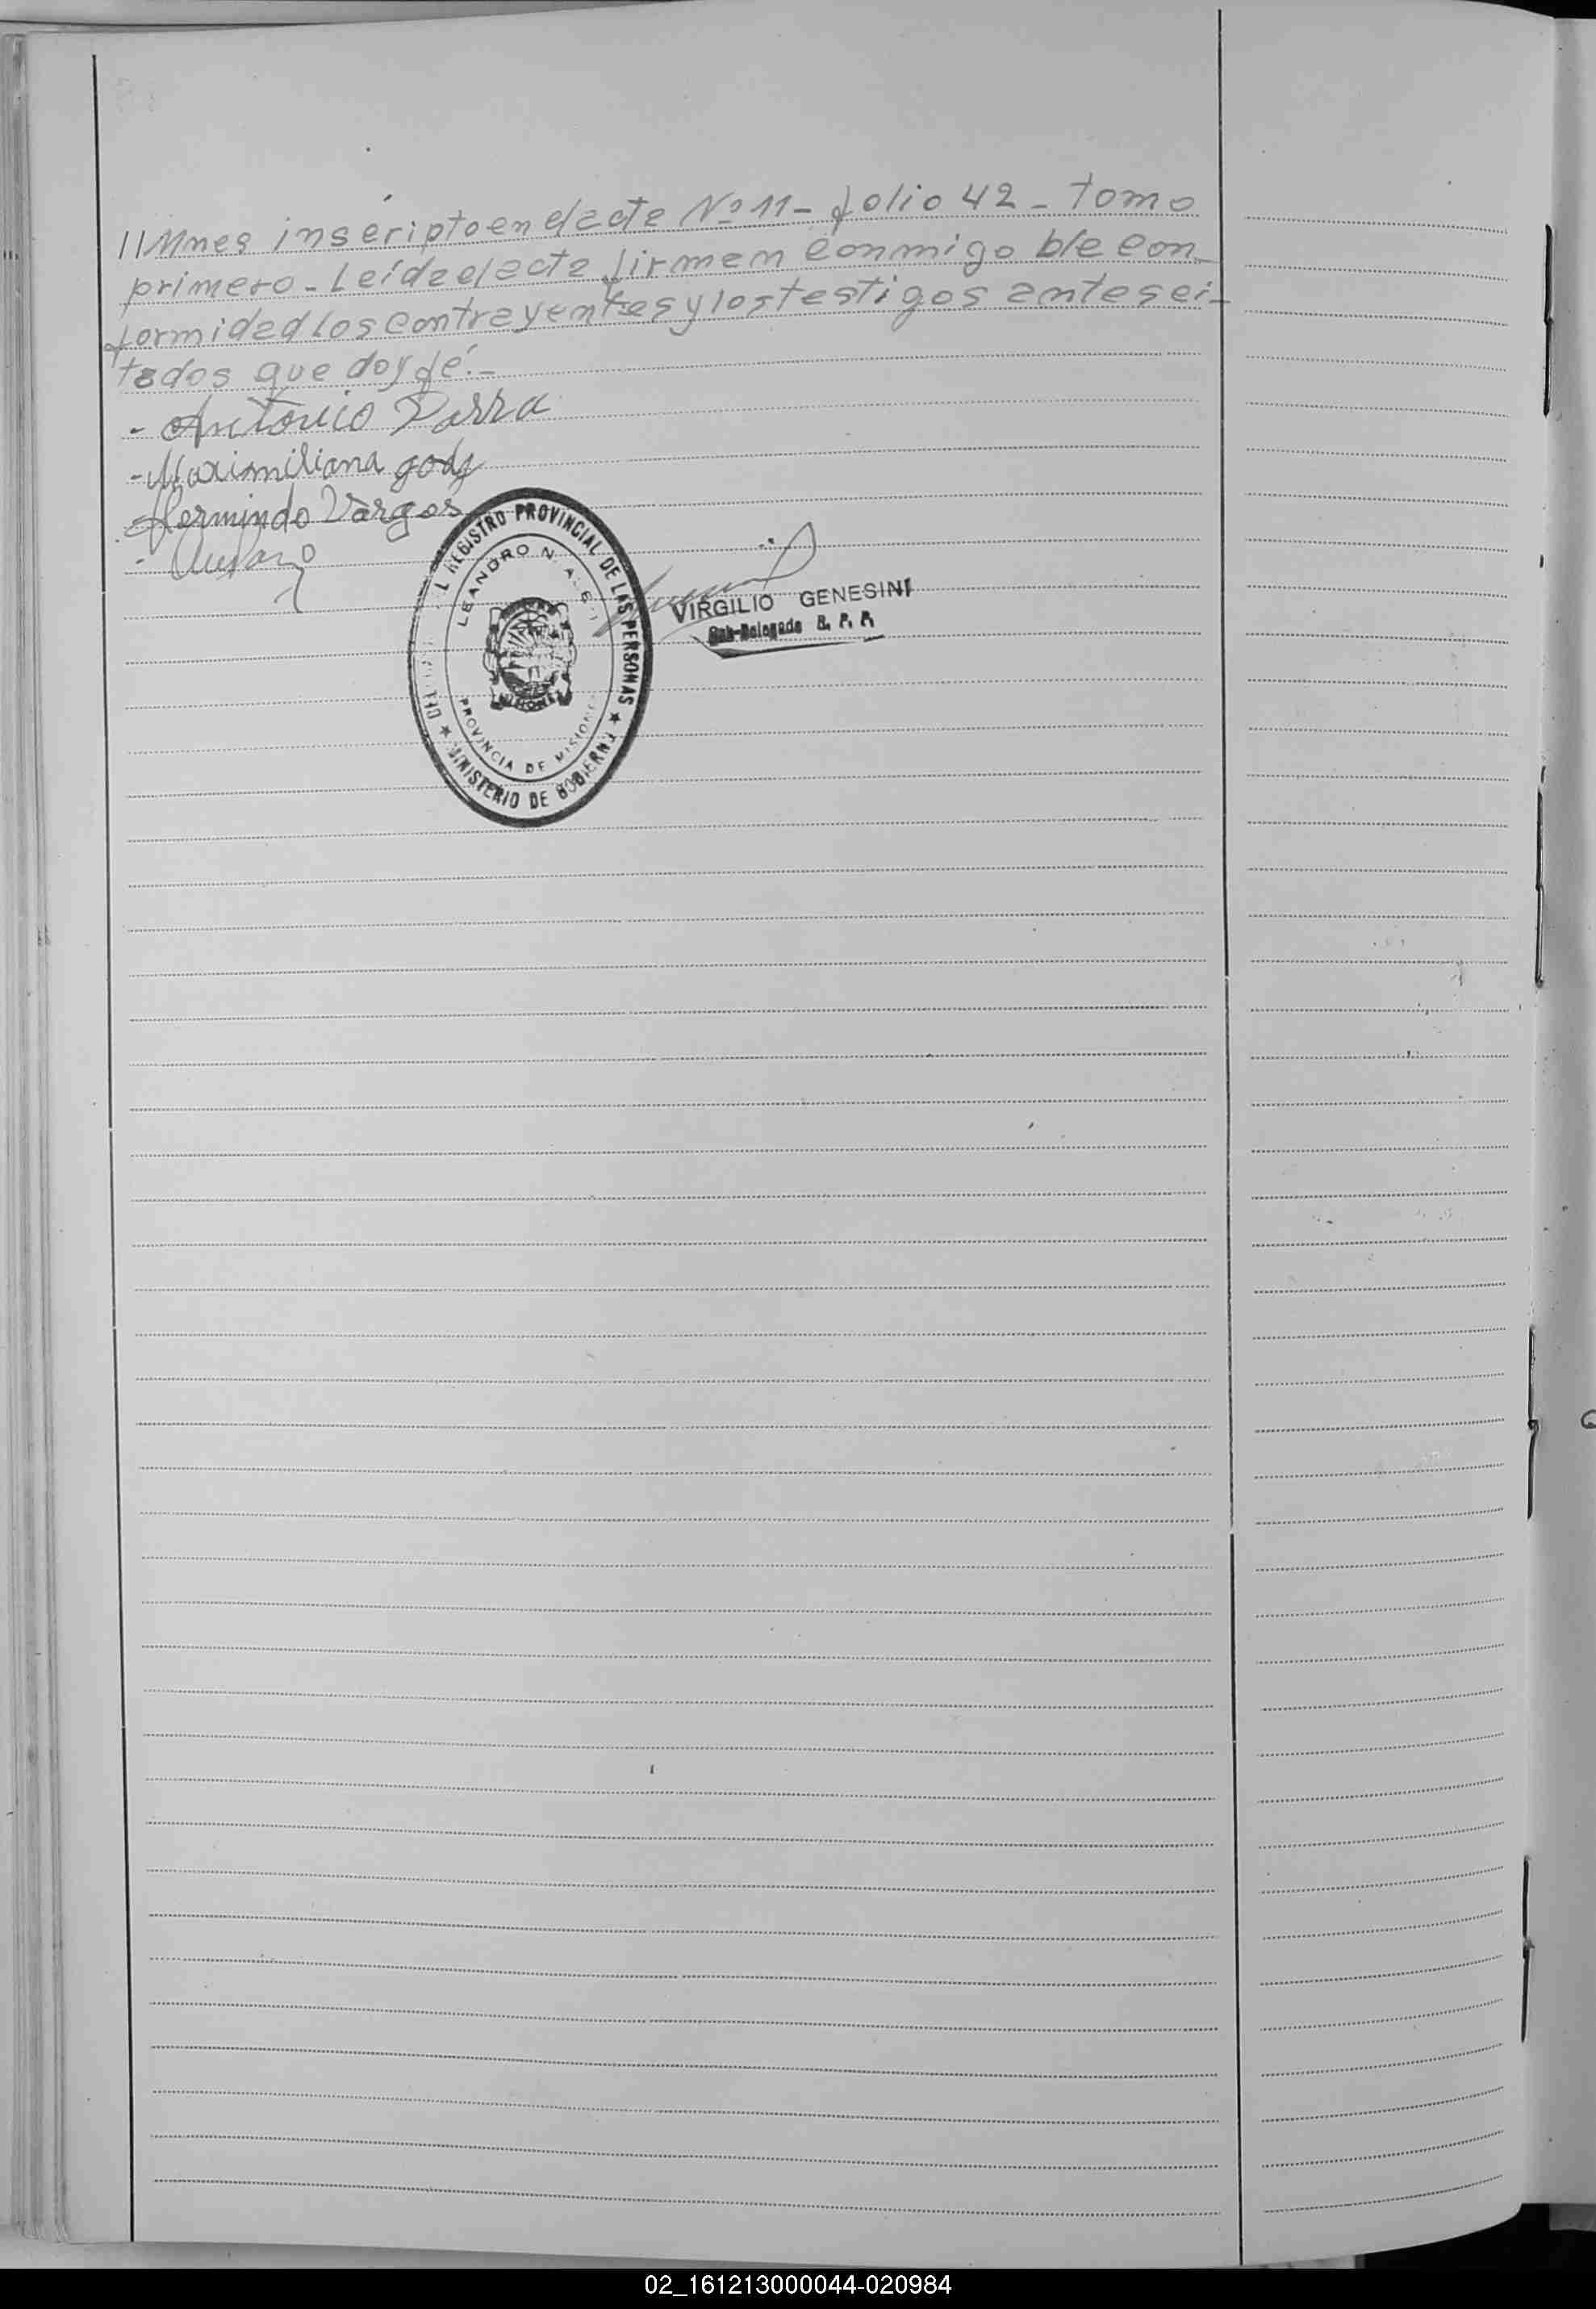 //Mnes inscripto en el acta Nº 11 - folio 42 - tomo
primero - Leída el acta firman conmigo ble con_
formidad los contrayentes y los testigos antes ci_
tados que doy fé.-
- Antonio Parra
- Maximiliana gody
Hermindo Vargas
REGISTRO PROVINCIAL DE LAS PERSONAS ★ MINISTERIO DE GOBIERNO ★
LEANDRO N. ALEM
PROVINCIA DE MISIONES
MISIONES
VIRGILIO GENESINI
Sub-Delegado R. P. P.
02_161213000044-020984